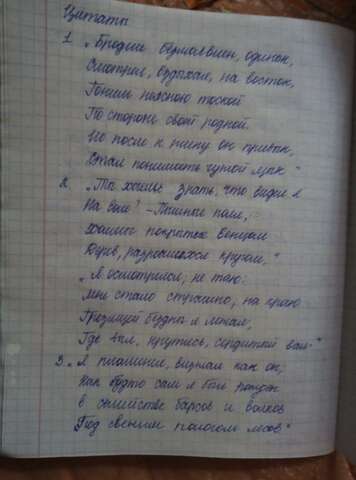 Цитаты
1. „Бродил безмолвен, одинок,
Смотрел, вздыхая, на восток,
Томим неясною тоской
По стороне своей родной.
Но после к плену он привык,
Стал понимать чужой язык"
2. „Ты хочешь знать, что видел я
На воле? - Пышные поля,
Холмы покрытые венцом
Дерев, разросшихся кругом."
„Я осмотрелся; не таю:
Мне стало страшно, на краю
Грозящей бездны я лежал,
Где выл, крутясь, сердитый вал"
3. „Я пламенел, визжал как он;
Как будто сам я был рожден
в семействе барсов и волков
Под свежим пологом лесов"